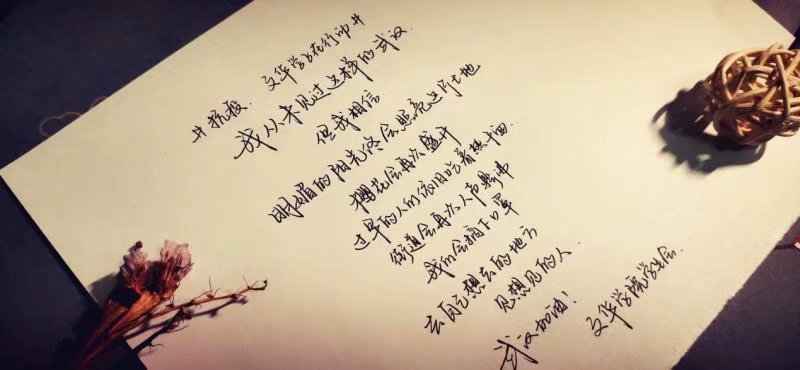 #抗疫,文华学子在行动#
我从未见过这样的武汉
但我相信
明媚的阳光终会照亮这片土地
樱花会再次盛开
过早的人们依旧吃着热干面
街道会再次人声鼎沸
我们会摘下口罩
去自己想去的地方
见想见的人
武汉加油!
文华学院学生会